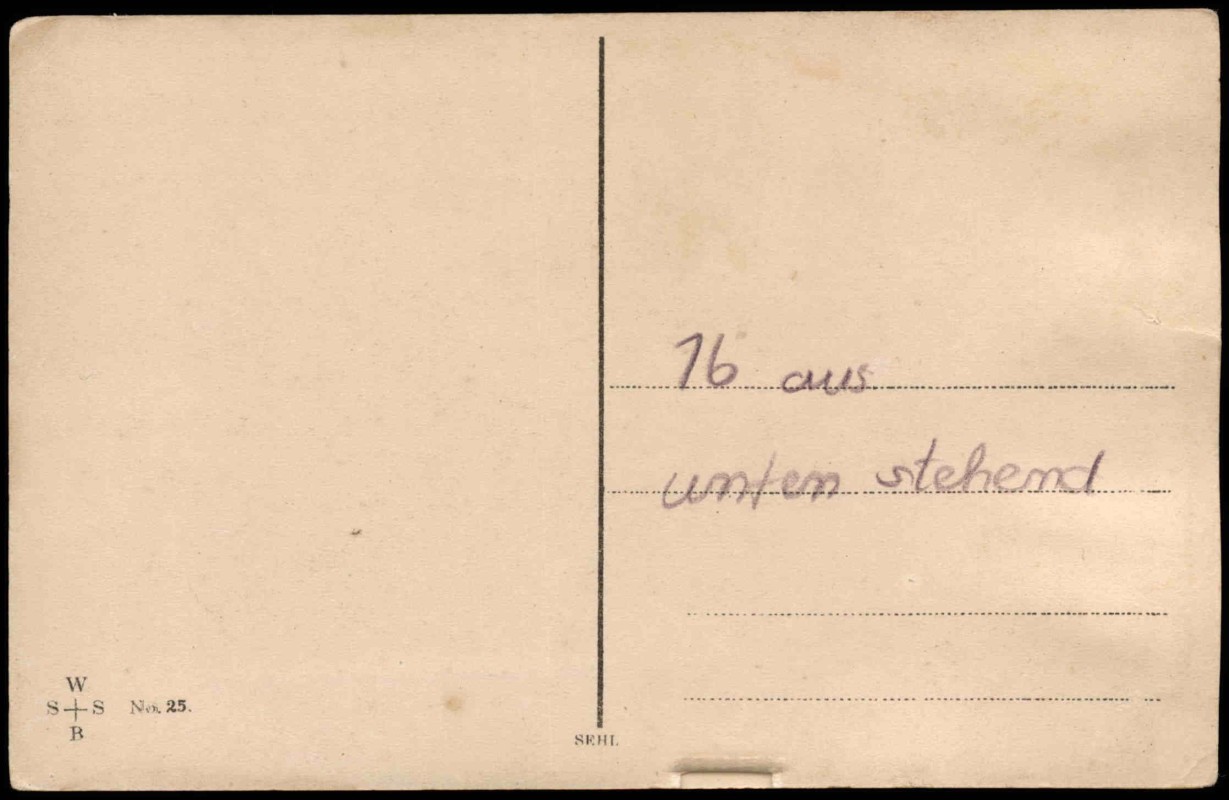 16 aus
unten stehend
W
S S No. 25.
B
SEHL